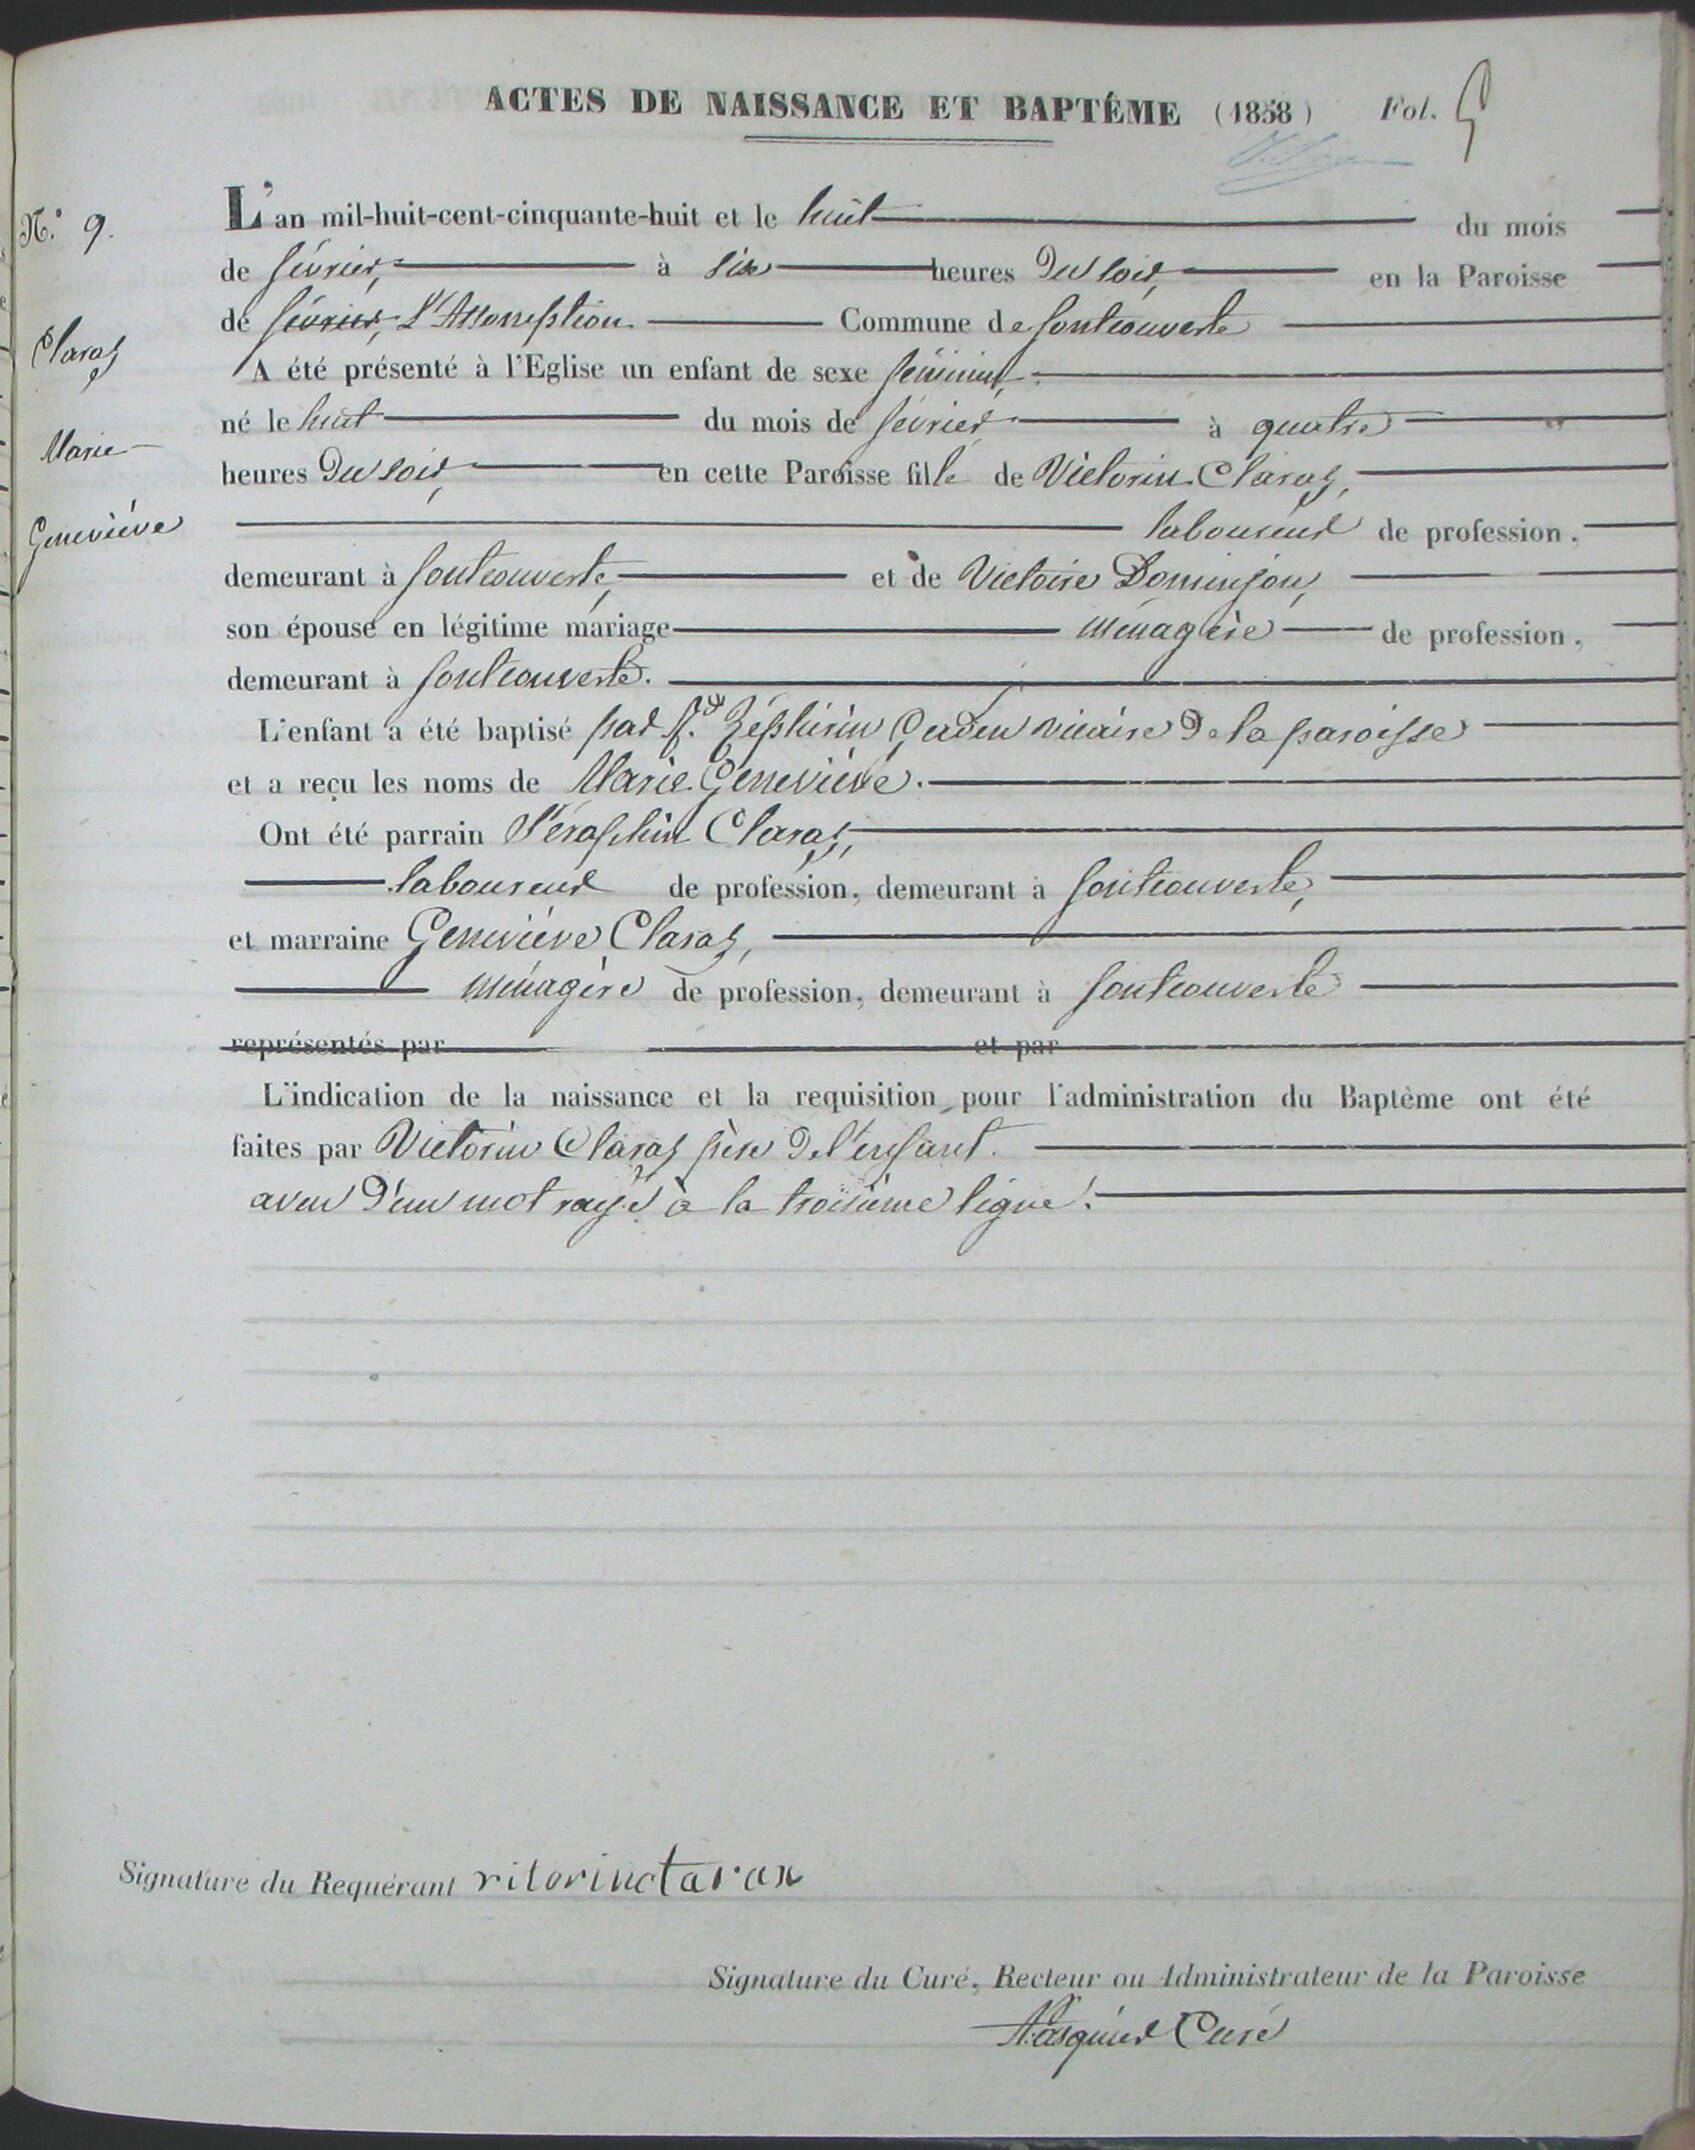 ACTES DE NAISSANCE ET BAPTÊME (1858) Fol. 5
N.° 9.
Claraz
Marie
Geneviève
L'an mil-huit-cent-cinquante-huit et le huit du mois
de février, à six heures du soir, en la Paroisse
de février, L'Assomption Commune de fontcouverte
A été présenté à l'Eglise un enfant de sexe féminin,
né le huit du mois de février à quatre
heures du soir, en cette Paroisse fille de Victorin Claraz,
laboureur de profession,
demeurant à fontcouverte, et de Victoire Dominjon,
son épouse en légitime mariage ménagère de profession,
demeurant à fontcouverte.
L'enfant a été baptisé par Rd Zéphirin vicaire de la paroisse
et a reçu les noms de Marie Geneviève.
Ont été parrain Séraphin Claraz,
laboureur de profession, demeurant à fontcouverte,
et marraine Geneviève Claraz,
ménagère de profession, demeurant à fontcouverte
représentés par et par
L'indication de la naissance et la requisition pour l'administration du Baptème ont été
faites par Victorin Claraz père de l'enfant.
aveu d'un mot rayé à la troisième ligne.
Signature du Requérant vitorinclarax
Signature du Curé, Recteur ou Administrateur de la Paroisse
Curé